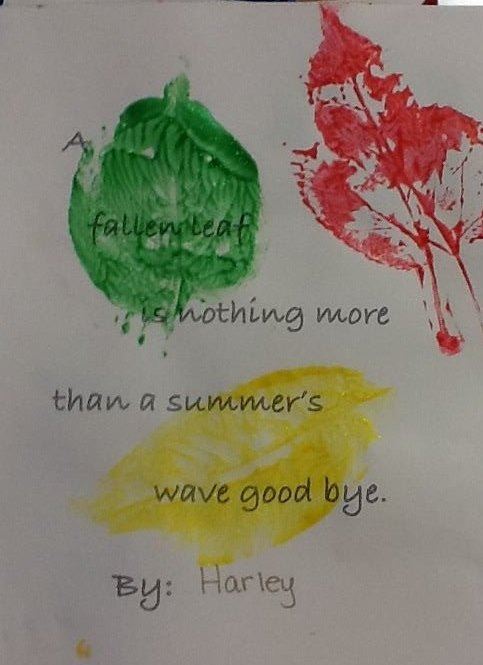 A
fallen leaf
is nothing more
than a summer's
wave good bye.
By: Harley